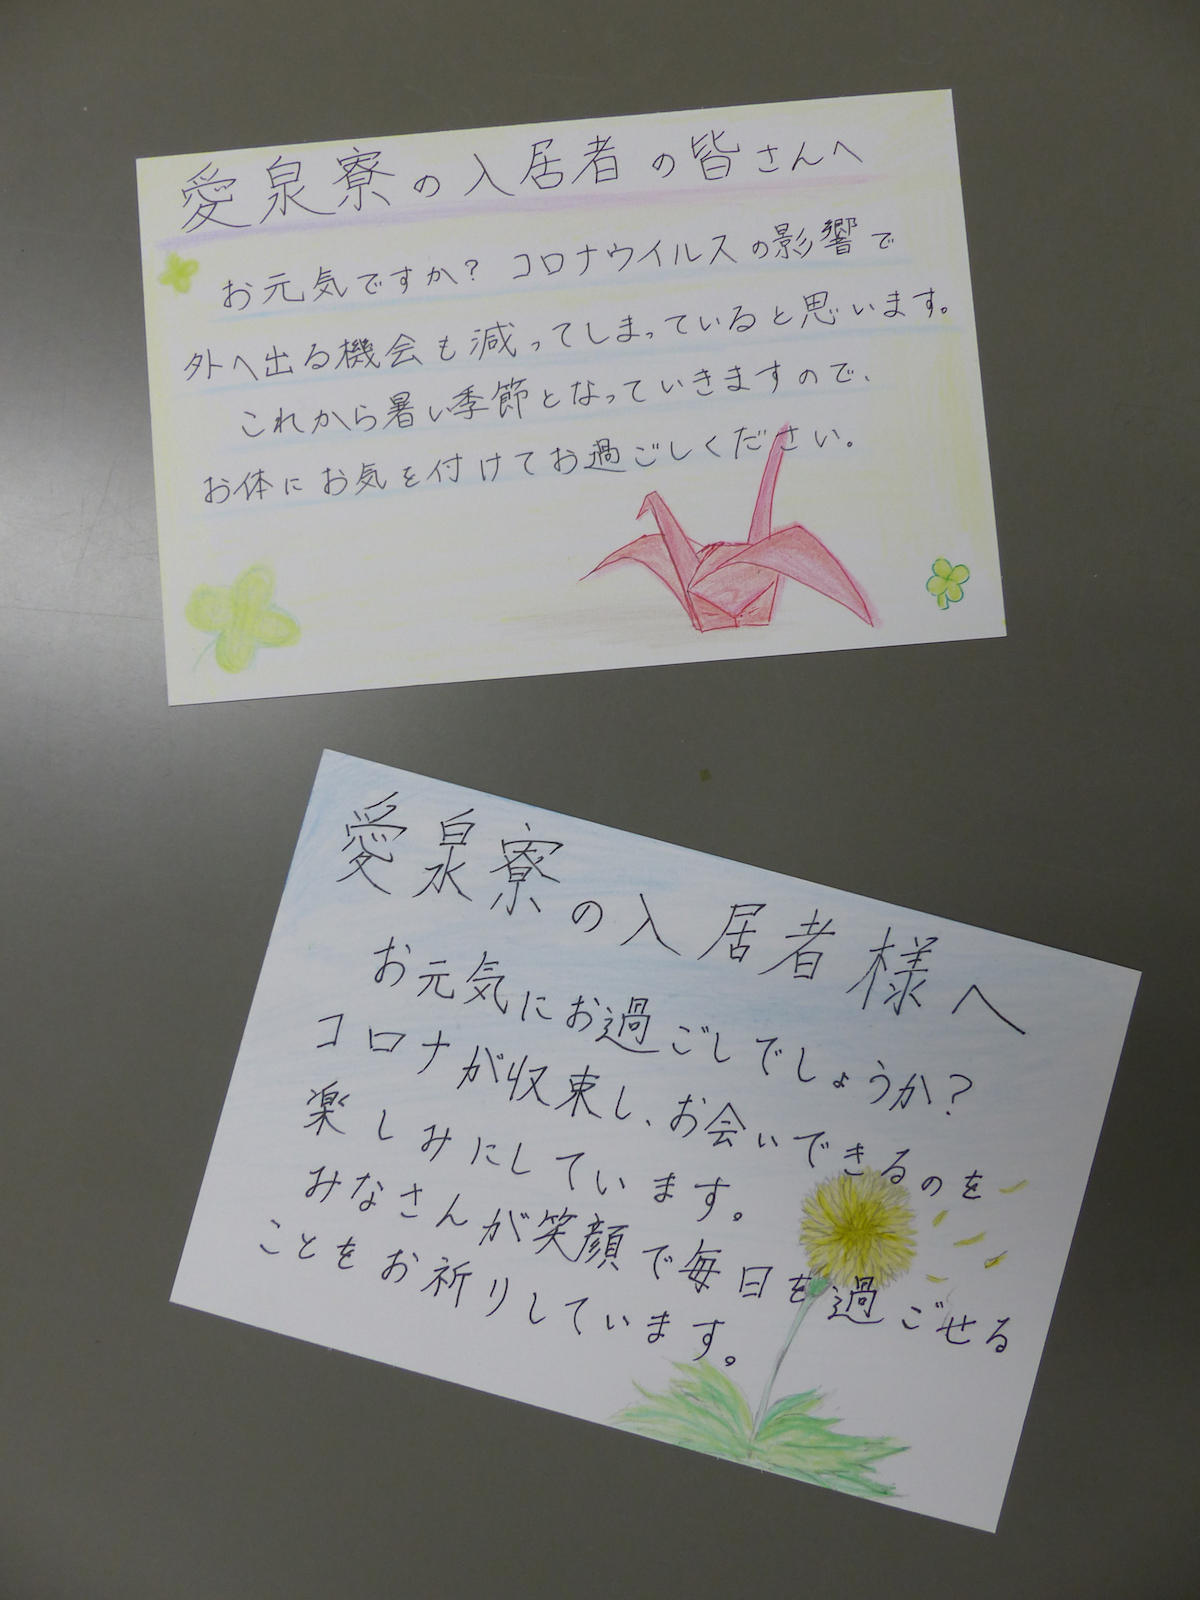 愛泉寮の入居者の皆さんへ
お元気ですか？ コロナウイルスの影響で
外へ出る機会も減ってしまっていると思います。
これから暑い季節となっていきますので、
お体にお気を付けてお過ごしください。
愛泉寮の入居者様へ
お元気にお過ごしでしょうか？
コロナが収束し、お会いできるのを
楽しみにしています。
みなさんが笑顔で毎日を過ごせる
ことをお祈りしています。